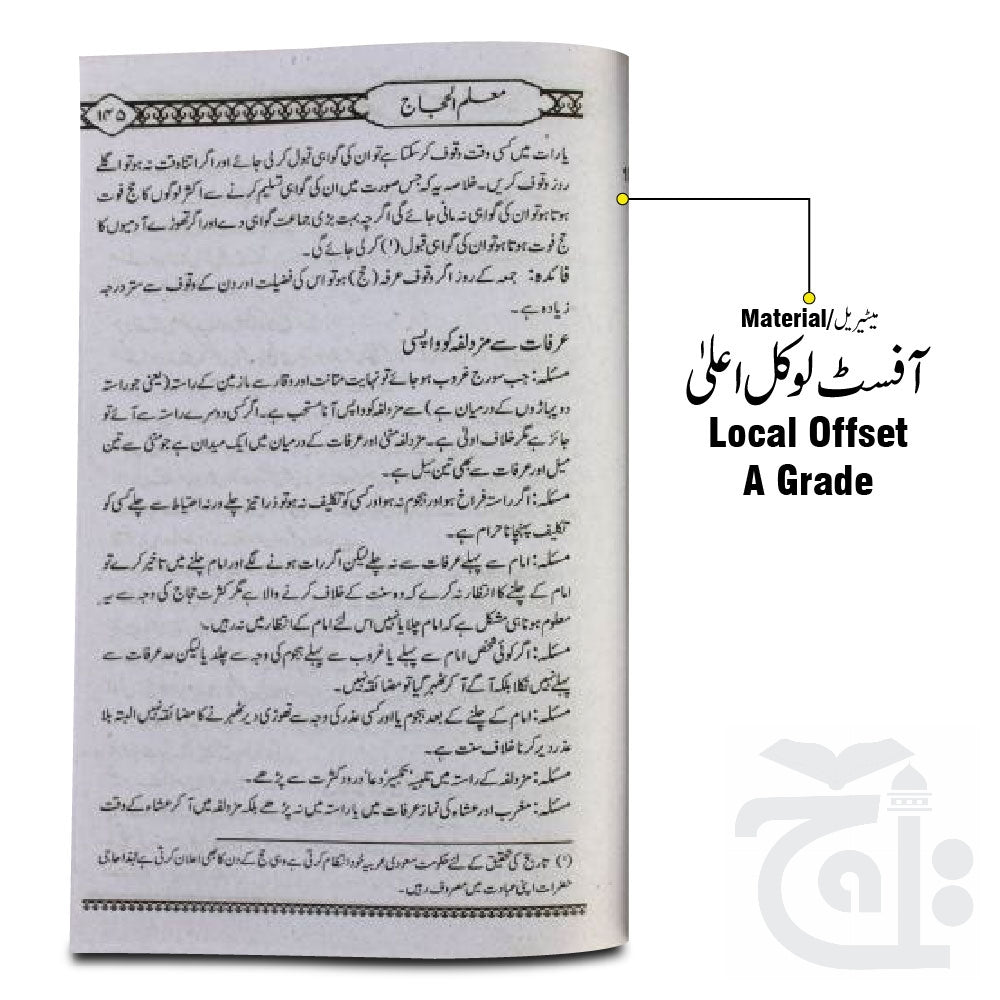 معلم الحجاج
۱۴۵
یا رات میں کسی وقت وقوف کر سکتا ہے تو ان کی گواہی قبول کر لی جائے اور اگر اتنا وقت نہ ہو تو اگلے
روز وقوف کریں۔ خلاصہ یہ کہ جس صورت میں ان کی گواہی تسلیم کرنے سے اکثر لوگوں کا حج فوت
ہوتا ہو تو ان کی گواہی نہ مانی جائے گی اگرچہ بہت بڑی جماعت گواہی دے اور اگر تھوڑے آدمیوں کا
حج فوت ہوتا ہو تو ان کی گواہی قبول (۱) کر لی جائے گی۔
فائدہ: جمعہ کے روز اگر وقوف عرفہ (حج) ہو تو اس کی فضیلت اور دن کے وقوف سے ستر درجہ
زیادہ ہے۔
عرفات سے مزدلفہ کو واپسی
مسئلہ: جب سورج غروب ہو جائے تو نہایت متانت اور وقار سے مازمین کے راستہ (یعنی جو راستہ
دو پہاڑوں کے درمیان ہے) سے مزدلفہ کو واپس آنا مستحب ہے۔ اگر کسی دوسرے راستہ سے آئے تو
جائز ہے مگر خلاف اولیٰ ہے۔ مزدلفہ منیٰ اور عرفات کے درمیان میں ایک میدان ہے جو منیٰ سے تین
میل اور عرفات سے بھی تین میل ہے۔
مسئلہ: اگر راستہ فراخ ہو اور ہجوم نہ ہو اور کسی کو تکلیف نہ ہو تو ذرا تیز چلے ورنہ احتیاط سے چلے کسی کو
تکلیف پہنچانا حرام ہے۔
مسئلہ: امام سے پہلے عرفات سے نہ چلے لیکن اگر رات ہونے لگے اور امام چلنے میں تاخیر کرے تو
امام کے چلنے کا انتظار نہ کرے کہ وہ سنت کے خلاف کرنے والا ہے مگر کثرت حجاج کی وجہ سے یہ
معلوم ہونا ہی مشکل ہے کہ امام چلا یا نہیں اس لئے امام کے انتظار میں نہ رہیں۔
مسئلہ: اگر کوئی شخص امام سے پہلے یا غروب سے پہلے ہجوم کی وجہ سے چلدیا لیکن حد عرفات سے
پہلے نہیں نکلا بلکہ آگے آ کر ٹھہر گیا تو مضائقہ نہیں۔
مسئلہ: امام کے چلنے کے بعد ہجوم یا اور کسی عذر کی وجہ سے تھوڑی دیر ٹھہرنے کا مضائقہ نہیں البتہ بلا
عذر دیر کرنا خلاف سنت ہے۔
مسئلہ: مزدلفہ کے راستہ میں تلبیہ' تکبیر' دعا' درود کثرت سے پڑھے۔
مسئلہ: مغرب اور عشاء کی نماز عرفات میں یا راستہ میں نہ پڑھے بلکہ مزدلفہ میں آ کر عشاء کے وقت
(۱) تاریخ کی تحقیق کے لئے حکومت سعودی عربیہ خود انتظام کرتی ہے وہی حج کے دن کا بھی اعلان کرتی ہے لہٰذا حاجی
حضرات اپنی عبادت میں مصروف رہیں۔
Material/میٹیریل
آفسٹ لوکل اعلیٰ
Local Offset
A Grade
تاج